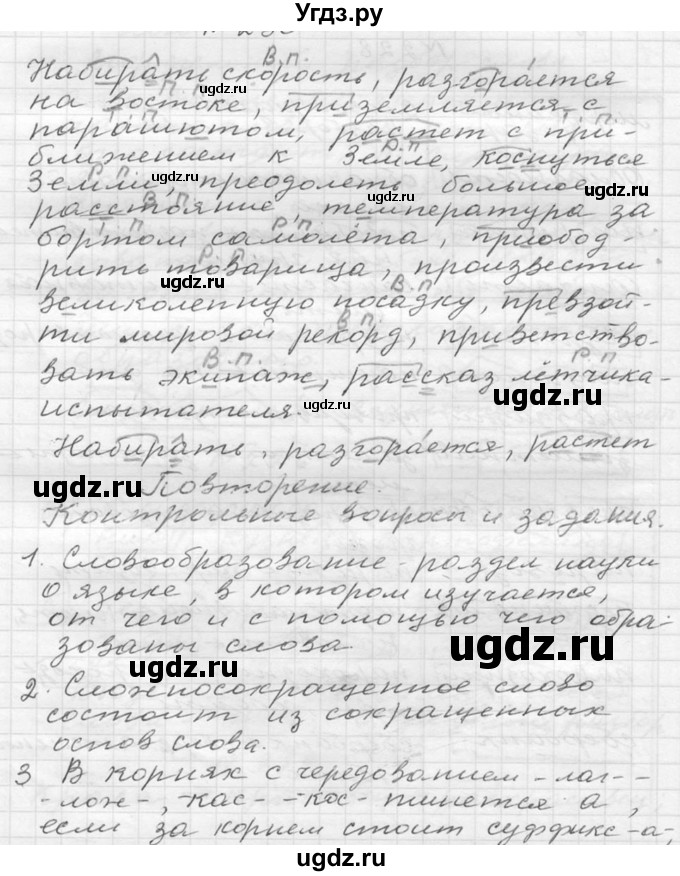 Угдз.ру
В.п.
Набирать скорость, разгорается
П.п.
на востоке, приземляется, с
Т.п.
парашютом, растет с при-
Д.п
ближением к Земле, коснуться
Р.п.
Земли, преодолеть большое
В.п.
расстояние, температура за
Т.п. Р.п
бортом самолёта, приобод-
Р.п.
рить товарища, произвести
В.п
великолепную посадку, превзой-
В.п.
ти мировой рекорд, приветство-
В.п. Р.п
вать экипаж, рассказ лётчика-
испытателя.
Набирать, разгорается, растет
Повторение.
Контрольные вопросы и задания.
1. Словообразование - раздел науки
о языке, в котором изучается,
от чего и с помощью чего обра-
зованы слова.
2. Сложносокращенное слово
состоит из сокращенных
основ слова.
3 В корнях с чередованием -лаг-
-лож-, -кас- -кос- пишется а,
если за корнем стоит суффикс -а-,
ugdz.ru
ugdz.ru
ugdz.ru
ugdz.ru
ugdz.ru
ugdz.ru
ugdz.ru
ugdz.ru
ugdz.ru
ugdz.ru
ugdz.ru
ugdz.ru
ugdz.ru
ugdz.ru